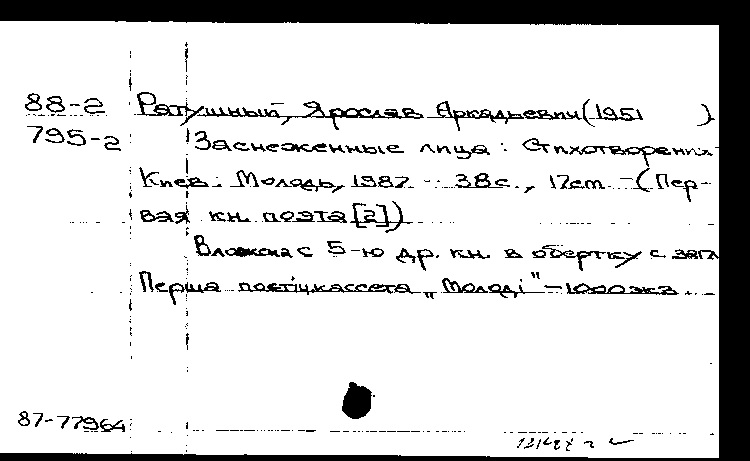 88-2 Ратушный, Ярослав Аркадьевич (1951 )
795-2 Заснеженные лица: Стихотворения
Киев: Молодь, 1987 - 38с., 17см - (Пер-
вая кн. поэта [2])
Вложена с 5-ю др. кн. в обертку с загл
Перша поетічкассета „Молоді" - 1000экз.
87-77964